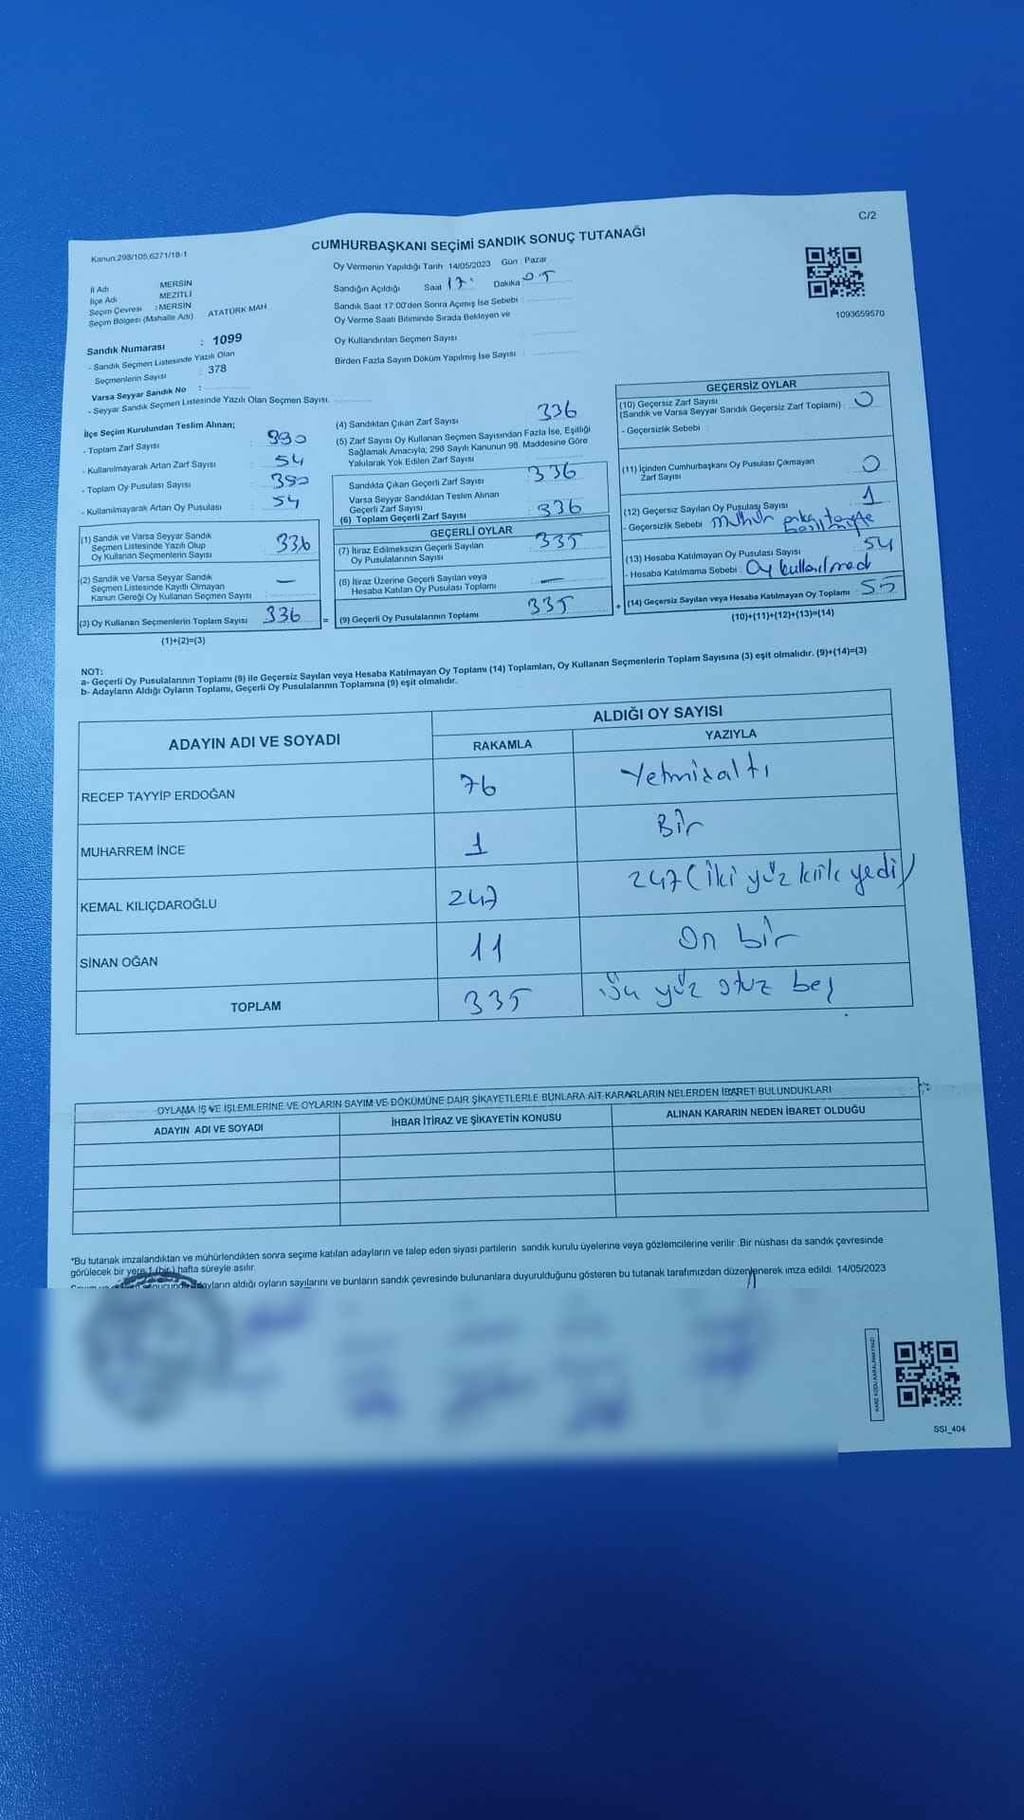 C/2
Kanun:298/105,6271/18-1
CUMHURBAŞKANI SEÇİMİ SANDIK SONUÇ TUTANAĞI
İl Adı MERSİN
İlçe Adı MEZİTLİ
Seçim Çevresi : MERSİN
Seçim Bölgesi (Mahalle Adı) ATATÜRK MAH
Sandık Numarası : 1099
- Sandık Seçmen Listesinde Yazılı Olan
Seçmenlerin Sayısı : 378
Varsa Seyyar Sandık No :
- Seyyar Sandık Seçmen Listesinde Yazılı Olan Seçmen Sayısı
Oy Vermenin Yapıldığı Tarih 14/05/2023 Gün : Pazar
Sandığın Açıldığı Saat 17: Dakika 05
Sandık Saat 17:00'den Sonra Açımış İse Sebebi :
Oy Verme Saati Bitiminde Sırada Bekleyen ve
Oy Kullandırılan Seçmen Sayısı
Birden Fazla Sayım Döküm Yapılmış İse Sayısı :
1093659570
İlçe Seçim Kurulundan Teslim Alınan;
- Toplam Zarf Sayısı : 390
- Kullanılmayarak Artan Zarf Sayısı : 54
- Toplam Oy Pusulası Sayısı : 390
- Kullanılmayarak Artan Oy Pusulası : 54
(1) Sandık ve Varsa Seyyar Sandık
Seçmen Listesinde Yazılı Olup
Oy Kullanan Seçmenlerin Sayısı 336
(2) Sandık ve Varsa Seyyar Sandık
Seçmen Listesinde Kayıtlı Olmayan
Kanun Gereği Oy Kullanan Seçmen Sayısı —
(3) Oy Kullanan Seçmenlerin Toplam Sayısı 336 =
(1)+(2)=(3)
(4) Sandıktan Çıkan Zarf Sayısı 336
(5) Zarf Sayısı Oy Kullanan Seçmen Sayısından Fazla İse, Eşitliği
Sağlamak Amacıyla; 298 Sayılı Kanunun 98. Maddesine Göre
Yakılarak Yok Edilen Zarf Sayısı
Sandıkta Çıkan Geçerli Zarf Sayısı 336
Varsa Seyyar Sandıktan Teslim Alınan
Geçerli Zarf Sayısı
(6) Toplam Geçerli Zarf Sayısı 336
GEÇERLİ OYLAR
(7) İtiraz Edilmeksizin Geçerli Sayılan
Oy Pusulalarının Sayısı 335
(8) İtiraz Üzerine Geçerli Sayılan veya
Hesaba Katılan Oy Pusulası Toplamı —
(9) Geçerli Oy Pusulalarının Toplamı 335 +
GEÇERSİZ OYLAR
(10) Geçersiz Zarf Sayısı
(Sandık ve Varsa Seyyar Sandık Geçersiz Zarf Toplamı) 0
- Geçersizlik Sebebi :
(11) İçinden Cumhurbaşkanı Oy Pusulası Çıkmayan
Zarf Sayısı 0
(12) Geçersiz Sayılan Oy Pusulası Sayısı 1
- Geçersizlik Sebebi mühür arka
(13) Hesaba Katılmayan Oy Pusulası Sayısı 54
- Hesaba Katılmama Sebebi : Oy kullanılmadı
(14) Geçersiz Sayılan veya Hesaba Katılmayan Oy Toplamı 55
(10)+(11)+(12)+(13)=(14)
NOT:
a- Geçerli Oy Pusulalarının Toplamı (9) ile Geçersiz Sayılan veya Hesaba Katılmayan Oy Toplamı (14) Toplamları, Oy Kullanan Seçmenlerin Toplam Sayısına (3) eşit olmalıdır. (9)+(14)=(3)
b- Adayların Aldığı Oyların Toplamı, Geçerli Oy Pusulalarının Toplamına (9) eşit olmalıdır.
ADAYIN ADI VE SOYADI ALDIĞI OY SAYISI
RAKAMLA YAZIYLA
RECEP TAYYİP ERDOĞAN 76 Yetmişaltı
MUHARREM İNCE 1 Bir
KEMAL KILIÇDAROĞLU 247 247 (iki yüz kırk yedi)
SİNAN OĞAN 11 On bir
TOPLAM 335 üç yüz otuz beş
OYLAMA İŞ VE İŞLEMLERİNE VE OYLARIN SAYIM VE DÖKÜMÜNE DAİR ŞİKAYETLERLE BUNLARA AİT KARARLARIN NELERDEN İBARET BULUNDUKLARI
ADAYIN ADI VE SOYADI İHBAR İTİRAZ VE ŞİKAYETİN KONUSU ALINAN KARARIN NEDEN İBARET OLDUĞU
*Bu tutanak imzalandıktan ve mühürlendikten sonra seçime katılan adayların ve talep eden siyasi partilerin sandık kurulu üyelerine veya gözlemcilerine verilir. Bir nüshası da sandık çevresinde
görülecek bir yere 1 (bir) hafta süreyle asılır.
aldığı oyların sayılarını ve bunların sandık çevresinde bulunanlara duyurulduğunu gösteren bu tutanak tarafımızdan düzenlenerek imza edildi. 14/05/2023
SSI_404